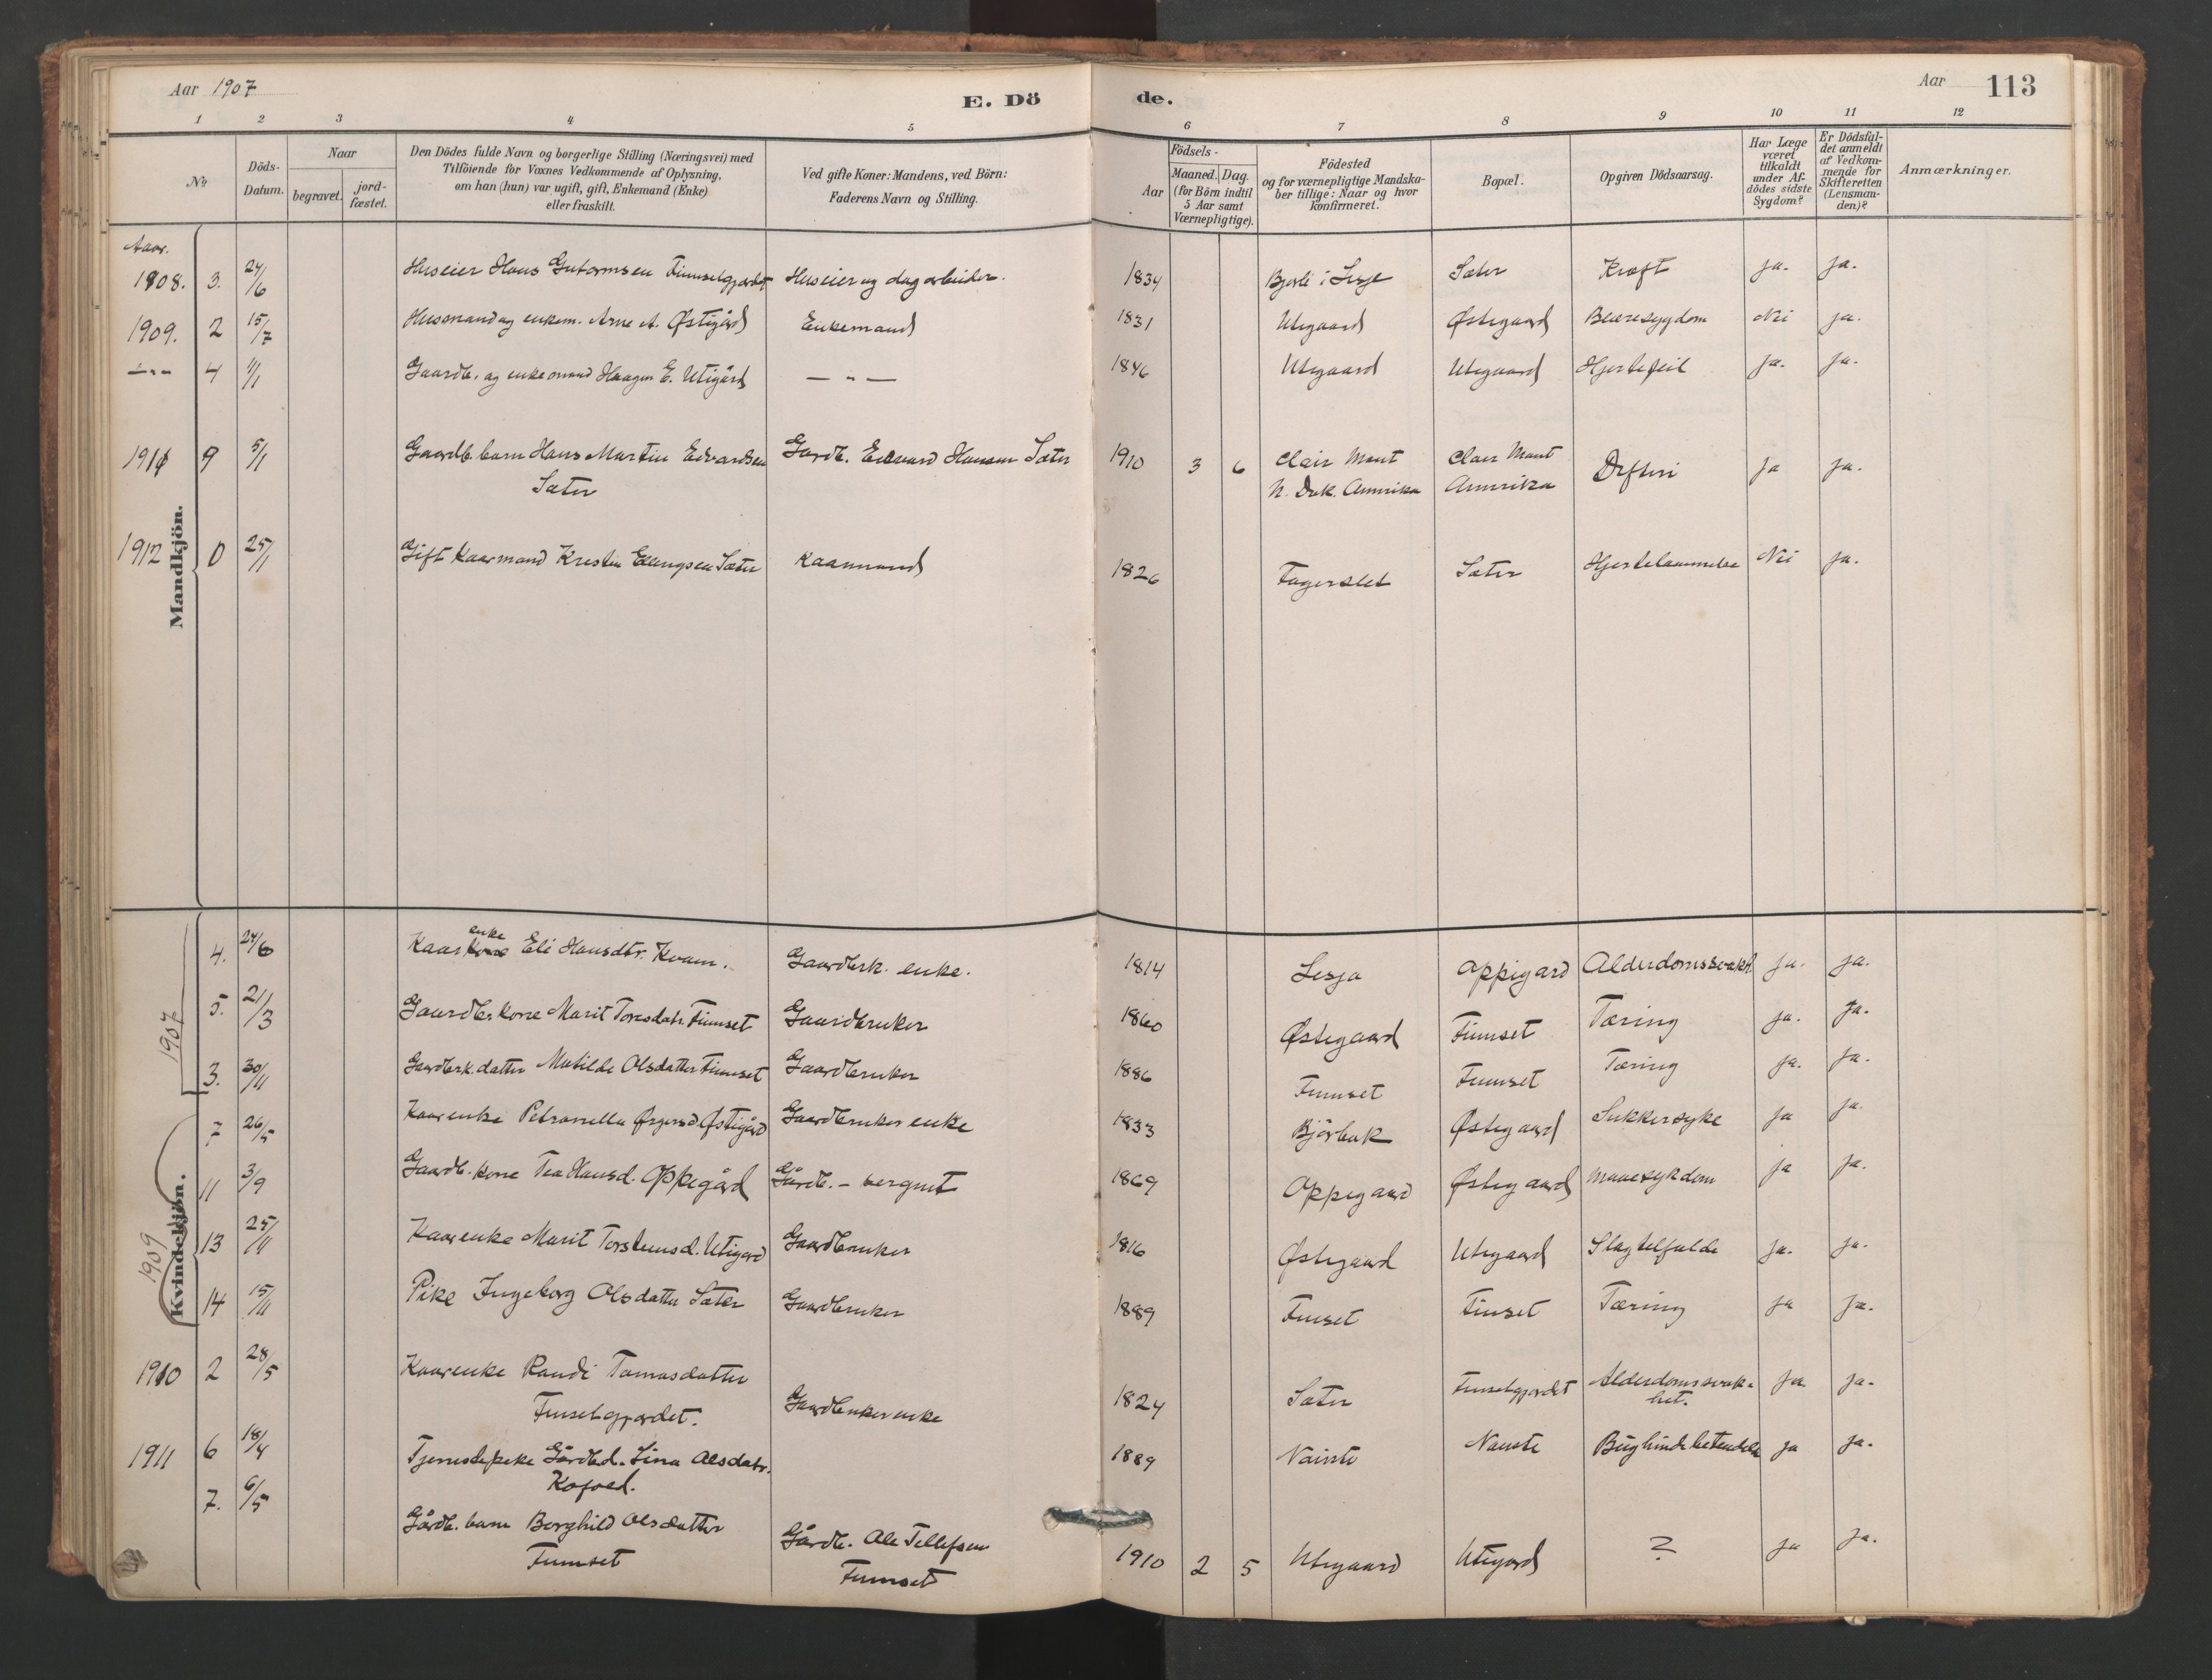 Aar 1907
E. Dö de.
Aar 113
1 2 3 4 5 6 7 8 9 10 11 12
No
Döds-Datum.
Naar
begravet.
jord-fæstet.
Den Dödes fulde Navn og borgerlige Stilling (Næringsvei) med
Tilföiende for Voxnes Vedkommende af Oplysning,
om han (hun) var ugift, gift, Enkemand (Enke)
eller fraskilt.
Ved gifte Koner: Mandens, ved Börn:
Faderens Navn og Stilling.
Födsels-
Aar
Maaned. Dag.
(for Börn indtil
5 Aar samt
Værnepligtige).
Födested
og for værnepligtige Mandska-
ber tillige: Naar og hvor
konfirmeret.
Bopæl.
Opgiven Dödsaarsag.
Har Læge
været
tilkaldt
under Af-
dödes sidste
Sygdom?
Er Dödsfal-
det anmeldt
af Vedkom-
mende for
Skifteretten
(Lensman-
den)?
Anmærkninger.
Mandkjön.
Aar.
1908. 3. 24/6 Huseier Hans Gutormsen Finnsetgjerdet Huseier og dagarbeider. 1834 Bjorli i Lesje Sæter Kræft ja. ja.
1909. 2 15/7 Husmand og enkem. Arne A. Østigård Enkemand 1831 Utegaard Østegaard Blæresygdom Nei ja.
—"— 4 1/1 Gaardb. og enkemand Haagen E. Utigård —"— 1846 Utegaard Utegaard Hjertefeil ja. ja.
1911 9 5/1 Gaardb. barn Hans Martin Edvardsen Gardb. Edvard Hansen Sæter 1910 3 6 Clair Mont Clair Mont Defteri ja ja.
Sæter N. Dak. Amerika Amerika
1912 0 25/1 Gift Kaarmand Kristen Ellingsen Sæter Kaarmand 1826 Fagerslet Sæter Hjertelammelse Nei ja.
Kvindekjön.
1907
enke
4. 24/6 Kaar Eli Hansdtr. Kvam. Gaardbrk. enke. 1814 Lesja Oppigard Alderdomssvakh. ja. ja.
5. 21/3 Gaardbr kone Marit Toresdatr. Finnset Gaardbruker 1860 Østegaard Finnset Tæring ja. ja.
3. 30/11 Gaardbrk. datter Matilde Olsdatter Finnset Gaardbruker 1886 Finnset Finnset Tæring ja. ja.
1909
7 26/5 Kaarenke Petronella Østigård Gaardbruker enke 1833 Bjørbak Østegaard Sukkersyke ja ja.
11 3/9 Gaardb. kone Tea Hansd. Oppegård Gårdb. - 1869 Oppegaard Østegaard Mavesykdom ja ja.
13 25/11 Kaarenke Marit Torsteinsd. Utigard Gaardbruker 1816 Østegaard Utegaard Slagtilfælde ja. ja.
14 15/11 Pike Ingeborg Olsdatter Sæter Gaardbruker 1889 Finset Finset Tæring ja ja.
1910 2 28/5 Kaarenke Randi Tomasdatter Gaardbruker enke 1824 Sæter Finsetgjerdet Alderdomssvak- ja ja.
Finsetgjerdet. het.
1911 6 18/4 Tjenestepike Gårdbd. Lina Olsdatr. 1889 Nauste Nauste Bughindebetendelse ja ja.
Kofoed.
7. 6/5 Gårdb. barn Borghild Olsdatter Gårdb. Ole Tellefsen 1910 2 5 Utegaard Utigard ? ja ja.
Finnset Finnset